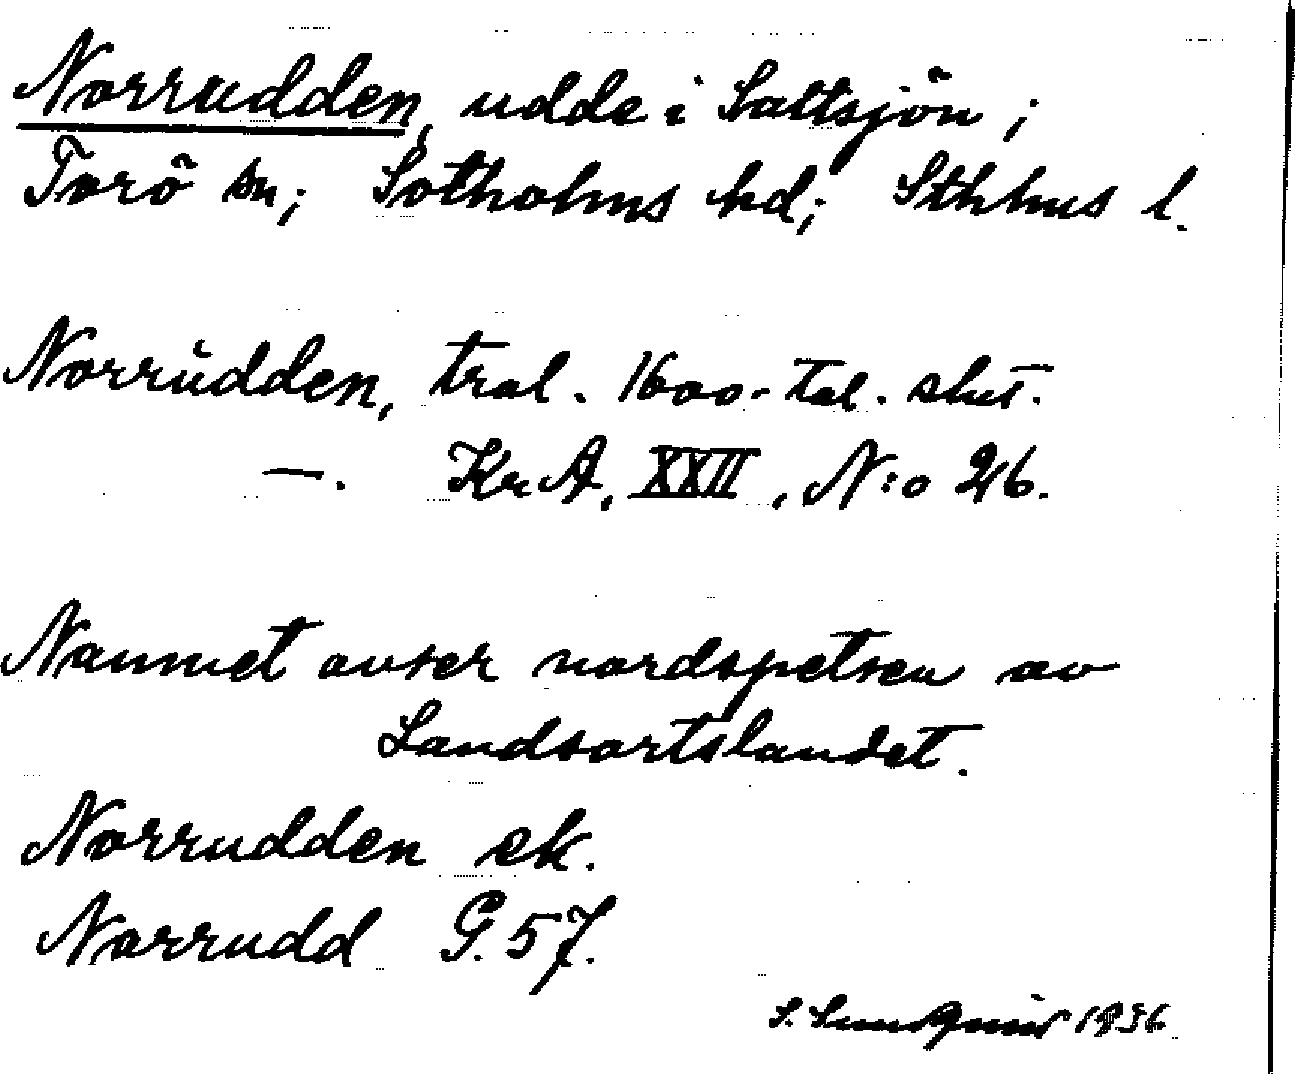 Norrudden, udde i Saltsjön;
Torö sn; Sotholms hd; Sthlms l.
Norrùdden, tral. 1600-tal. slut.
—. Kr A, XXII, N:o 26.
Namnet avser nordspetsen av
Landsortslandet.
Norrudden ek.
Norrudd G. 57.
S. Sundqvist 1936